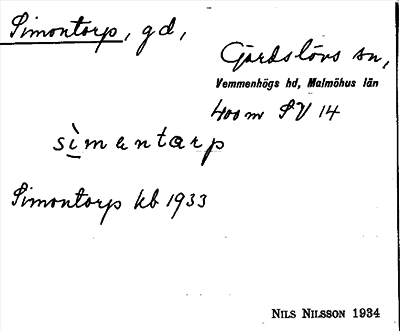 Simontorp, gd,
Gärdslövs sn,
Vemmenhögs hd, Malmöhus län
400 m SV 14
sìmantarp
Simontorp kb 1933
NILS NILSSON 1934